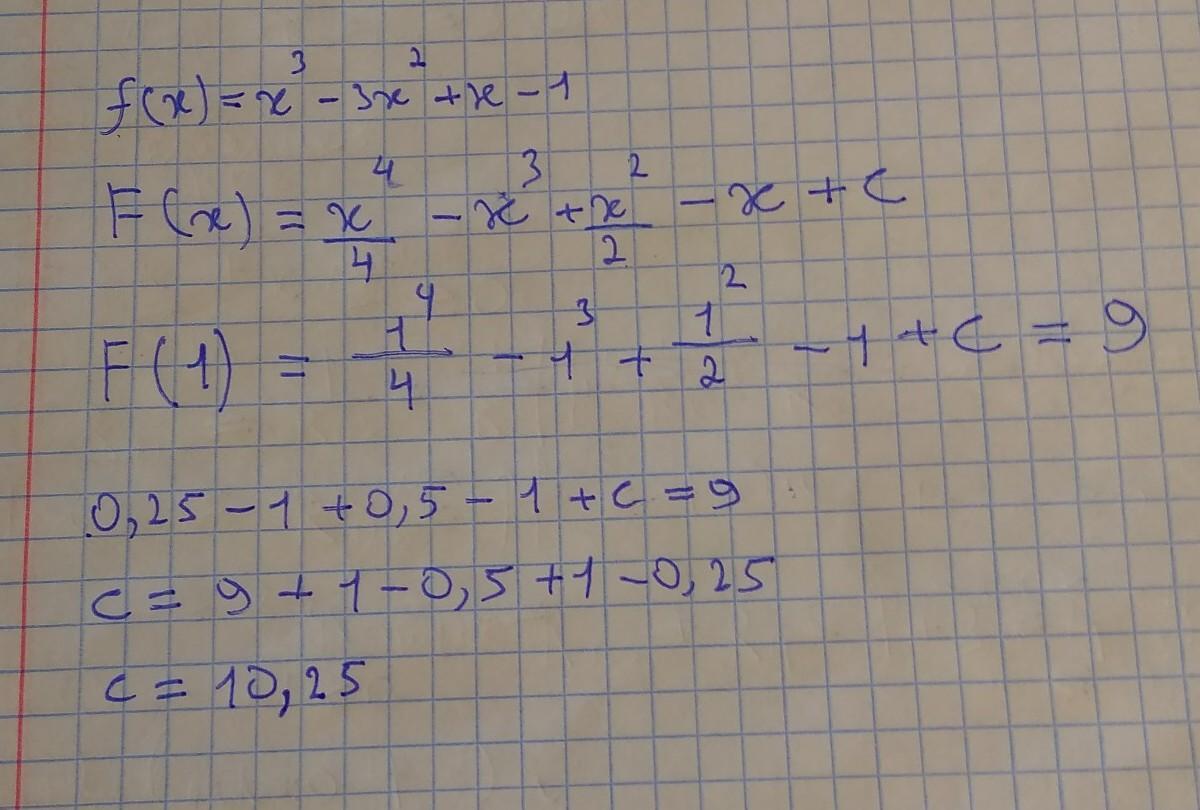 f(x) = x³ - 3x² + x - 1
F(x) = x⁴/4 - x³ + x²/2 - x + C
F(1) = 1⁴/4 - 1³ + 1²/2 - 1 + C = 9
0,25 - 1 + 0,5 - 1 + C = 9
C = 9 + 1 - 0,5 + 1 - 0,25
C = 10,25